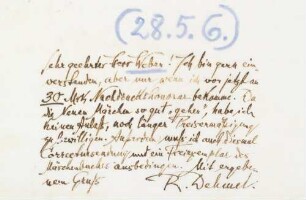 (28.5.6.)
Sehr geehrter Herr Weber! Ich bin gern ein-
verstanden, aber nur wenn ich vor jetzt an
30 Mrk. Nachdruckhonorar bekomme. Da
die neuen Märchen so gut gehen, habe ich
keinen Anlaß, noch länger Preisermäßigung
zu bewilligen. Außerdem muß ich auch diesmal
Correctursendung und ein Freiexemplar des
Märchenbuchs ausbedingen. Mit ergebe-
nem Gruß
R. Dehmel.